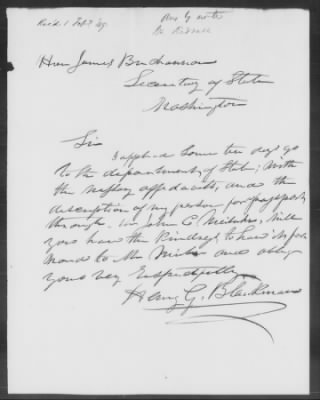 Rec'd 1 Sept 49.
Ans by note
Hon James Buchannon
Secretary of State
Washington
Sir
I applied some ten days go
to the department of State, with
the affidavits, and the
description of my person for passport
through John C. Nicholas, Will
you have the kindness to have it for
ward to Mr and oblige
yours very Respectfully
Henry G. Blackman